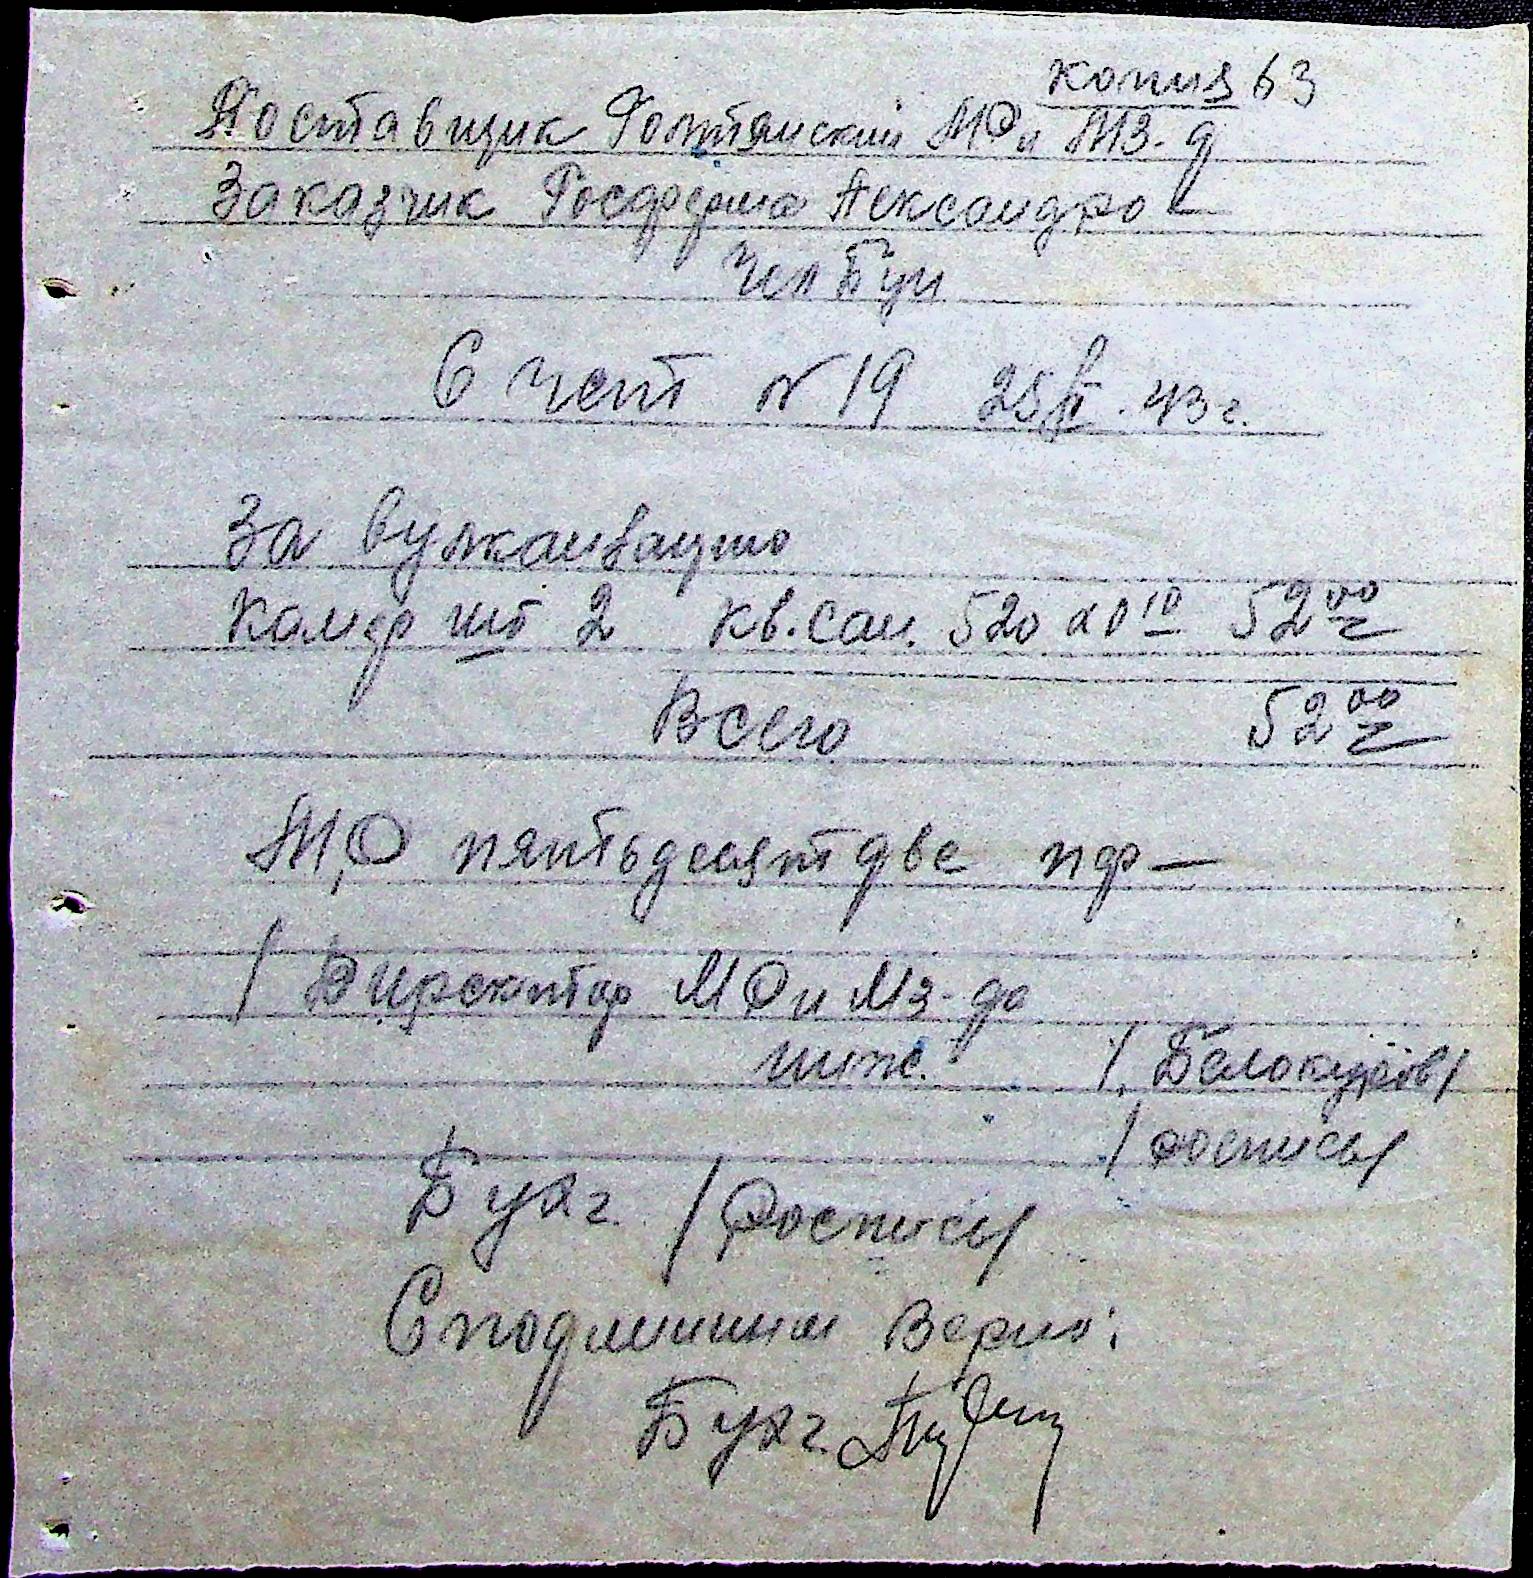 копия 63
Поставщик Голтянский МО и МЗ-д
Заказчик Госферма Александро
Счет N 19 25 43 г.
За вулканзацию
Камер шт 2 кв. сан. 520 а 0 10 52 00
Всего 52 00
пятьдесят две
/ Директор МО и МЗ-да
инж. / Белокуров /
/ роспись /
Бухг. / Роспись /
С подлинным верно:
Бухг.